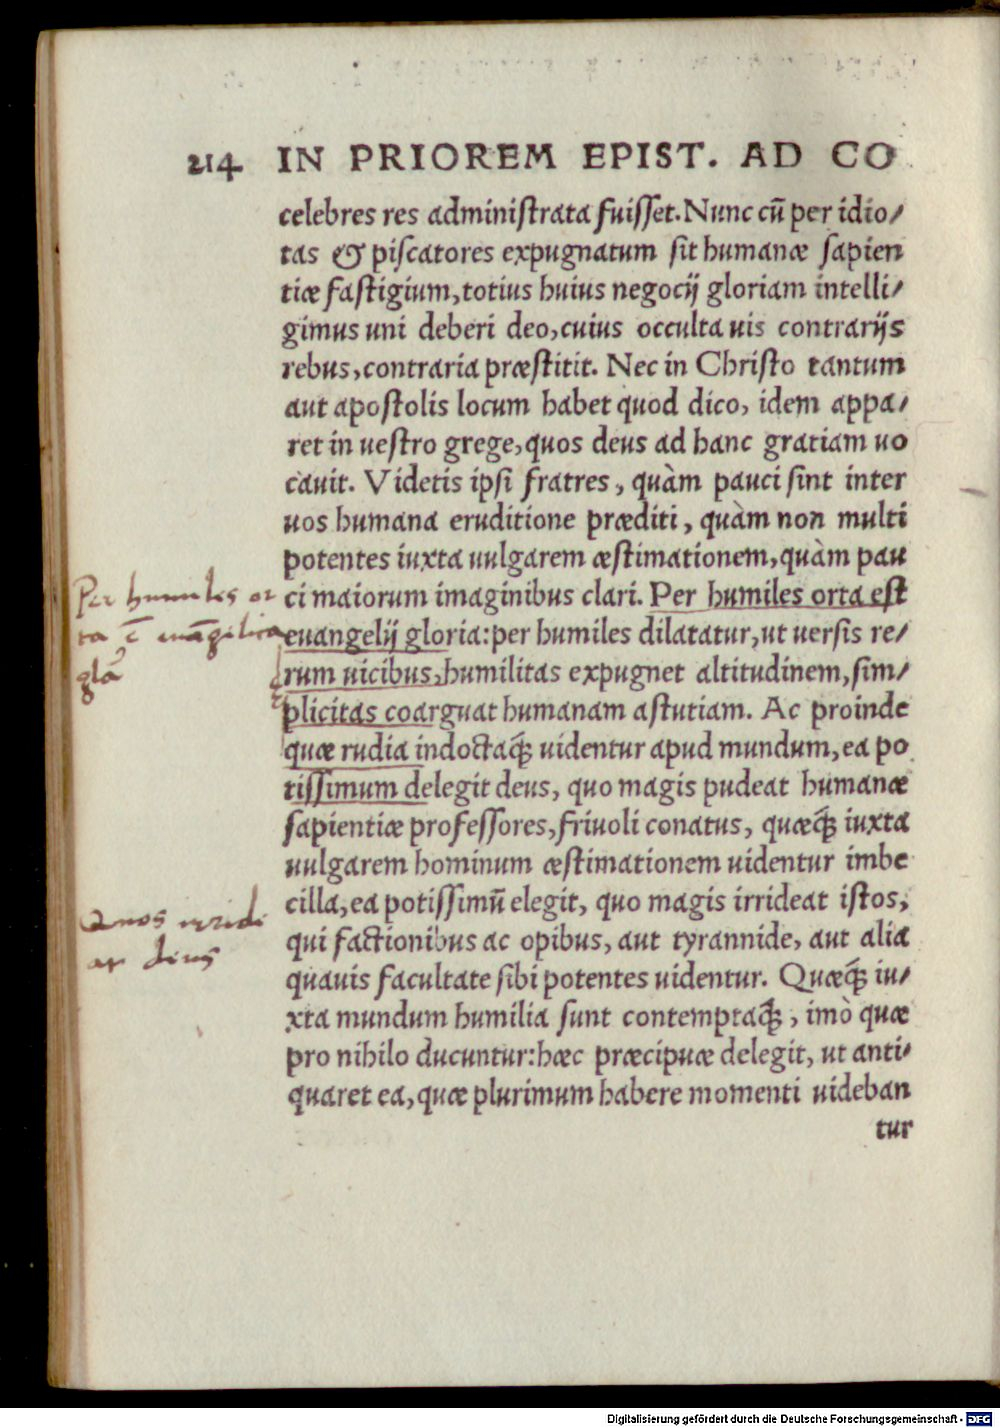 214 IN PRIOREM EPIST. AD CO
celebres res administrata fuisset. Nunc cũ per idio/
tas & piscatores expugnatum sit humanæ sapien
tiæ fastigium, totius huius negocij gloriam intelli/
gimus uni deberi deo, cuius occulta uis contrarijs
rebus, contraria præstitit. Nec in Christo tantum
aut apostolis locum habet quod dico, idem appa/
ret in uestro grege, quos deus ad hanc gratiam uo
cauit. Videtis ipsi fratres, quàm pauci sint inter
uos humana eruditione præditi, quàm non multi
potentes iuxta uulgarem æstimationem, quàm pau
ci maiorum imaginibus clari. Per humiles orta est
euangelij gloria: per humiles dilatatur, ut uersis re/
rum uicibus, humilitas expugnet altitudinem, sim/
plicitas coarguat humanam astutiam. Ac proinde
quæ rudia indoctaq́; uidentur apud mundum, ea po
tissimum delegit deus, quo magis pudeat humanæ
sapientiæ professores, friuoli conatus, quæq́; iuxta
uulgarem hominum æstimationem uidentur imbe
cilla, ea potissimũ elegit, quo magis irrideat istos,
qui factionibus ac opibus, aut tyrannide, aut alia
quauis facultate sibi potentes uidentur. Quæq́; iu/
xta mundum humilia sunt contemptaq́;, imò quæ
pro nihilo ducuntur: hæc præcipuæ delegit, ut anti/
quaret ea, quæ plurimum habere momenti uideban
tur
Per humiles or
ta ē euāgelica
glā
Quos irride
at deus
Digitalisierung gefördert durch die Deutsche Forschungsgemeinschaft - DFG